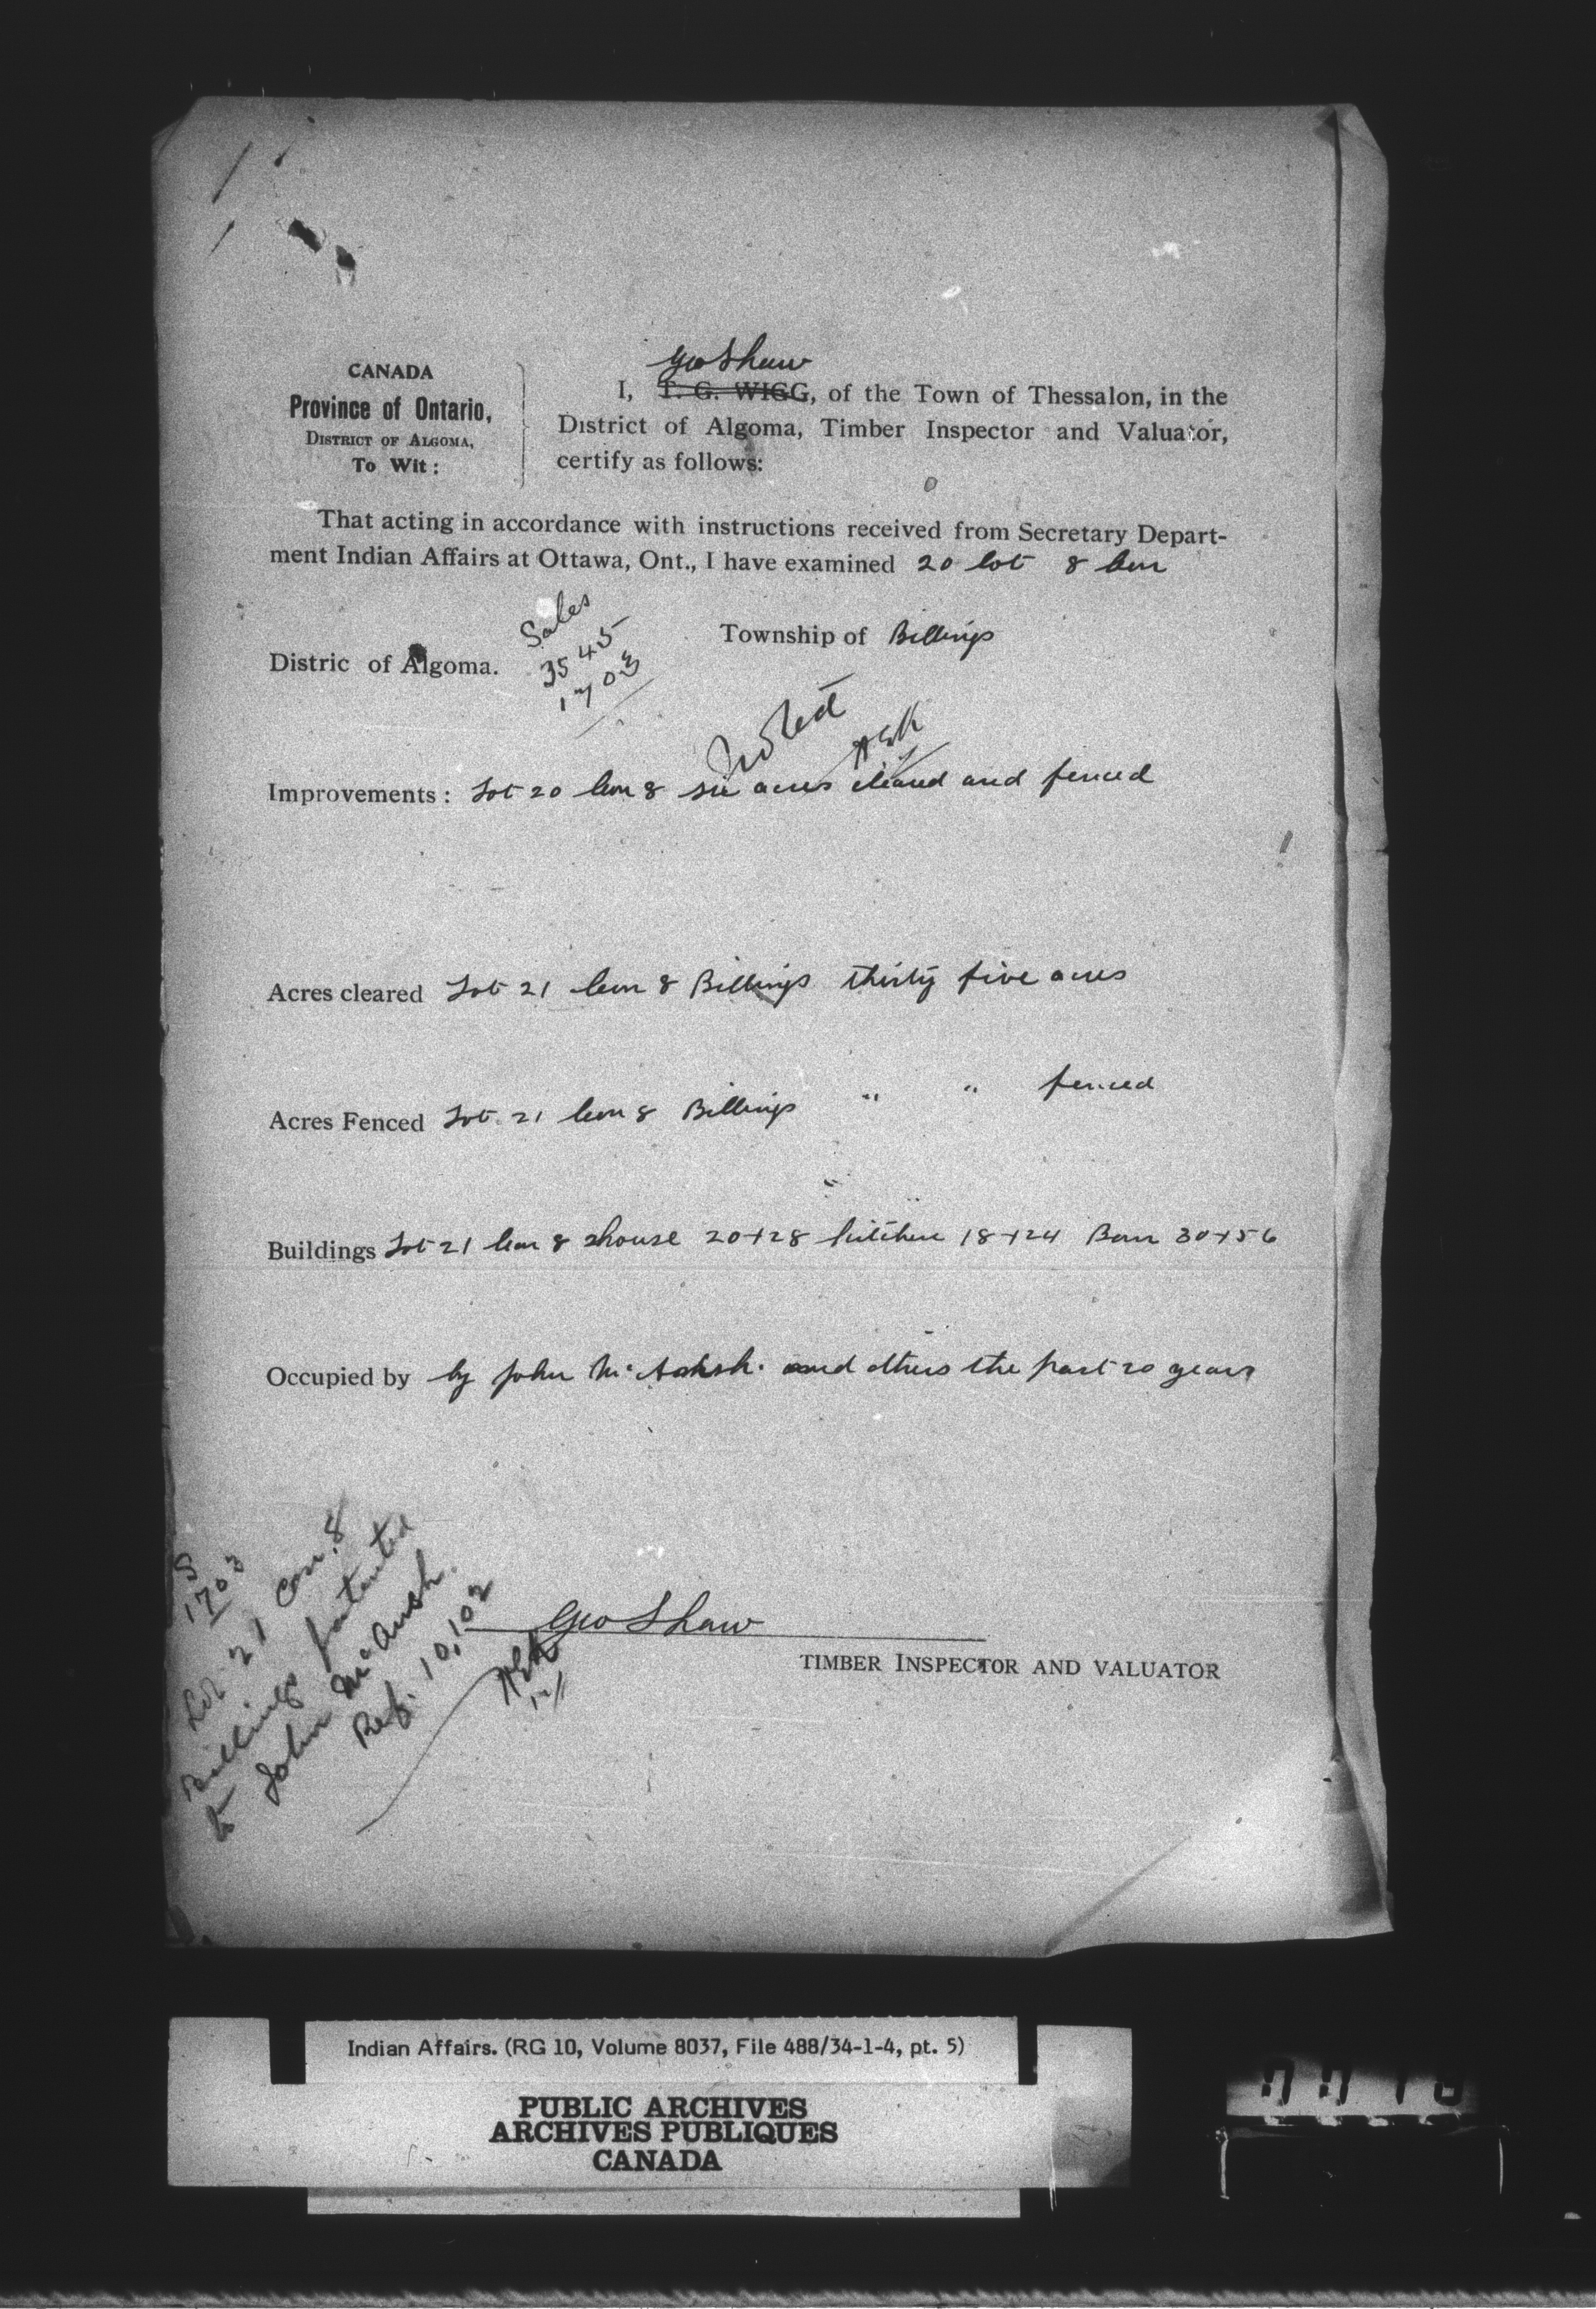 Geo Shaw
CANADA
Province of Ontario,
DISTRICT OF ALGOMA,
To Wit:
I, T. G. WIGG, of the Town of Thessalon, in the
District of Algoma, Timber Inspector and Valuator,
certify as follows:
That acting in accordance with instructions received from Secretary Depart-
ment Indian Affairs at Ottawa, Ont., I have examined 20 lot 8 Con
Township of Billings
Distric of Algoma.
Sales
3545
1703
Noted
Improvements: Lot 20 Con 8 six acres cleared and fenced
Acres cleared Lot 21 Con 8 Billings thirty five acres
Acres Fenced Lot 21 Con 8 Billings " " fenced
Buildings Lot 21 Con 8 house 20+28 kitchen 18+24 Barn 30+56
Occupied by by John and others the past 20 years
S
1703
Lot 21 Con. 8
Billings patented
to John McAush.
Ref. 10,102
Geo Shaw
TIMBER INSPECTOR AND VALUATOR
Indian Affairs. (RG 10, Volume 8037, File 488/34-1-4, pt. 5)
PUBLIC ARCHIVES
ARCHIVES PUBLIQUES
CANADA